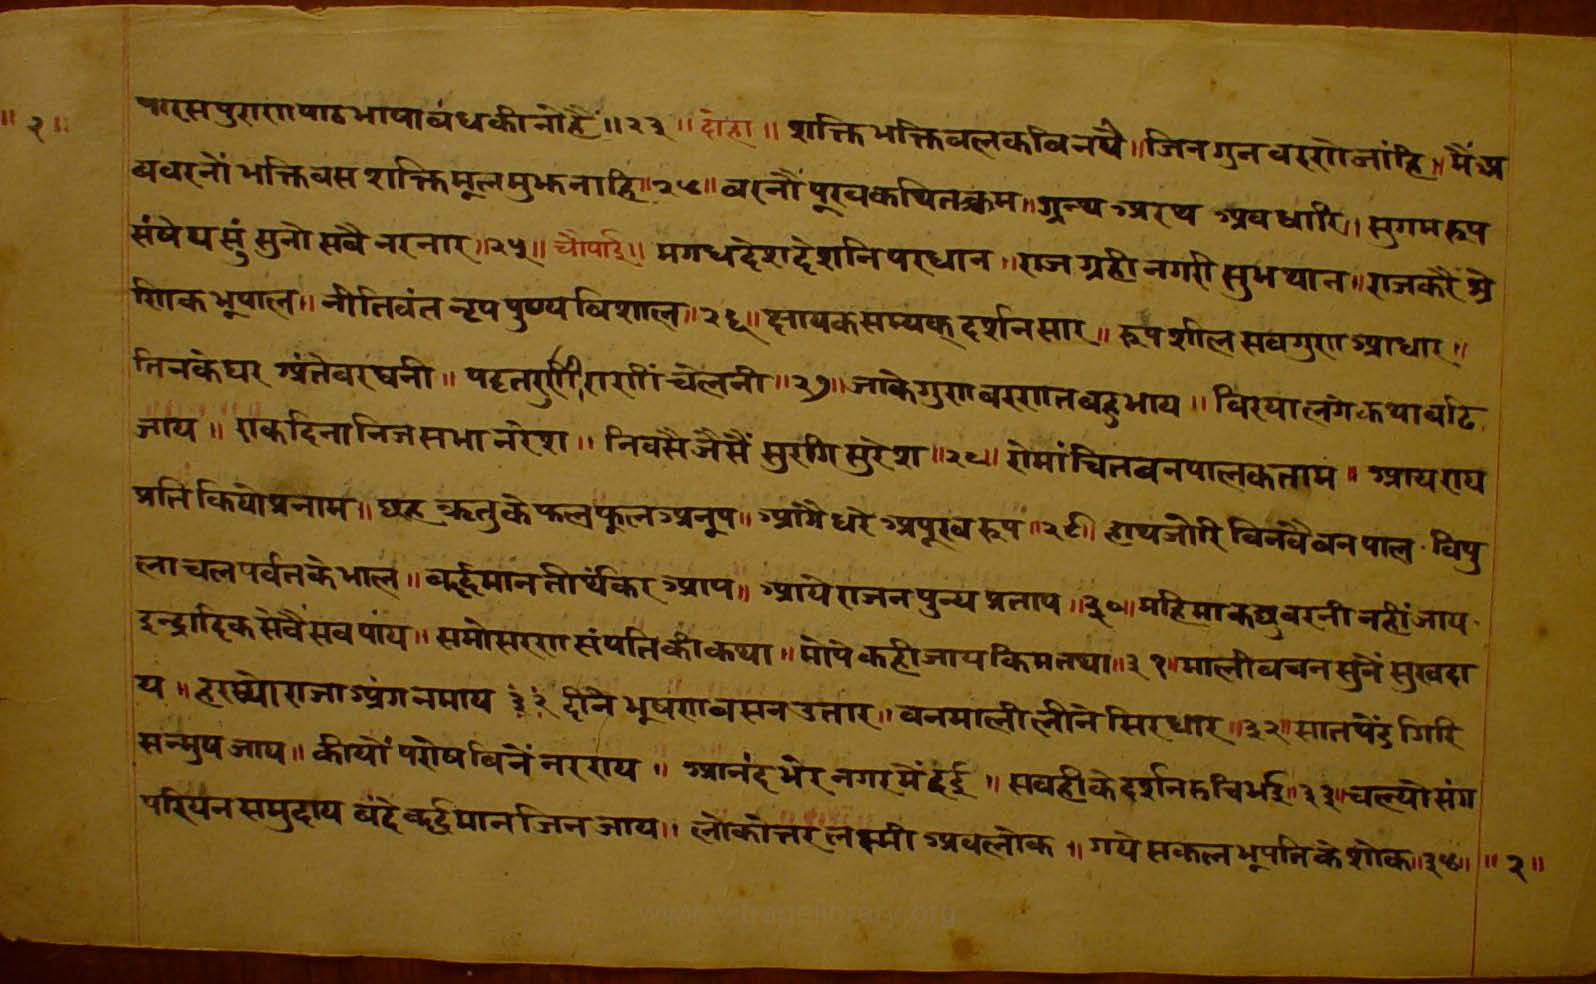 ॥ २ ॥
पारसपुराणपाठभाषाबंधकीनौहै ॥ २३ ॥ दोहा ॥ शक्तिभक्तिबलकविनपै ॥ जिनगुनवरणेजांहि ॥ मैंअ
बवरनौं भक्तिवस शक्तिमूलमुझनाहि ॥ २४ ॥ वरनौं पूरवकथितक्रम ॥ ग्रन्थ अरथ अवधारि ॥ सुगमरूप
संषेपसुं सुनो सबै नरनार ॥ २५ ॥ चौपाई ॥ मगधदेशदेशनिपरधान ॥ राजग्रही नगरी सुभथान ॥ राजकरै श्रे
णिक भूपाल ॥ नीतिवंत नृप पुण्य विशाल ॥ २६ ॥ क्षायकसम्यक् दर्शनसार ॥ रूप शील सबगुण आधार ॥
तिनकेघर अंतेवर घनी ॥ पट्टतरुणी राणीं चेलनी ॥ २७ ॥ जाकेगुणवरणतबहुभाय ॥ विरयालगेकथावढि
जाय ॥ एकदिना निज सभा नरेश ॥ निवसै जैसैं सुरगि सुरेश ॥ २८ ॥ रोमांचितवनपालकताम ॥ आयराय
प्रति कियोप्रनाम ॥ छह ऋतु के फल फूल अनूप ॥ आंगै धरे अपूरव रूप ॥ २९ ॥ हाथजोरि विनवै वनपाल · विपु
लाचलपर्वतकेभाल ॥ वर्द्धमानतीर्थंकर आप ॥ आये राजन पुन्य प्रताप ॥ ३० ॥ महिमाकछुवरनी नहीं जाय ·
इन्द्रादिक सेवैं सब पांय ॥ समोसरण संपति की कथा ॥ मोपेकहीजाय किम तथा ॥ ३१ ॥ माली वचन सुनें सुखदा
य ॥ हरष्यो राजा अंग न माय ३२ दीने भूषण वसन उतार ॥ वनमाली लीने सिरधार ॥ ३२ ॥ सात पेंड गिरि
सन्मुष जाय ॥ कीयौं परोष विनें नरराय ॥ आनंद भेर नगर मैं दई ॥ सबहीके दर्शन रुचि भई ॥ ३३ ॥ चल्यो संग
परियन समुदाय वंदे वर्द्धमान जिन जाय ॥ लोकोत्तर लक्ष्मी अवलोक ॥ गये सकल भूपति के शोक ॥ ३४ ॥ ॥ २ ॥